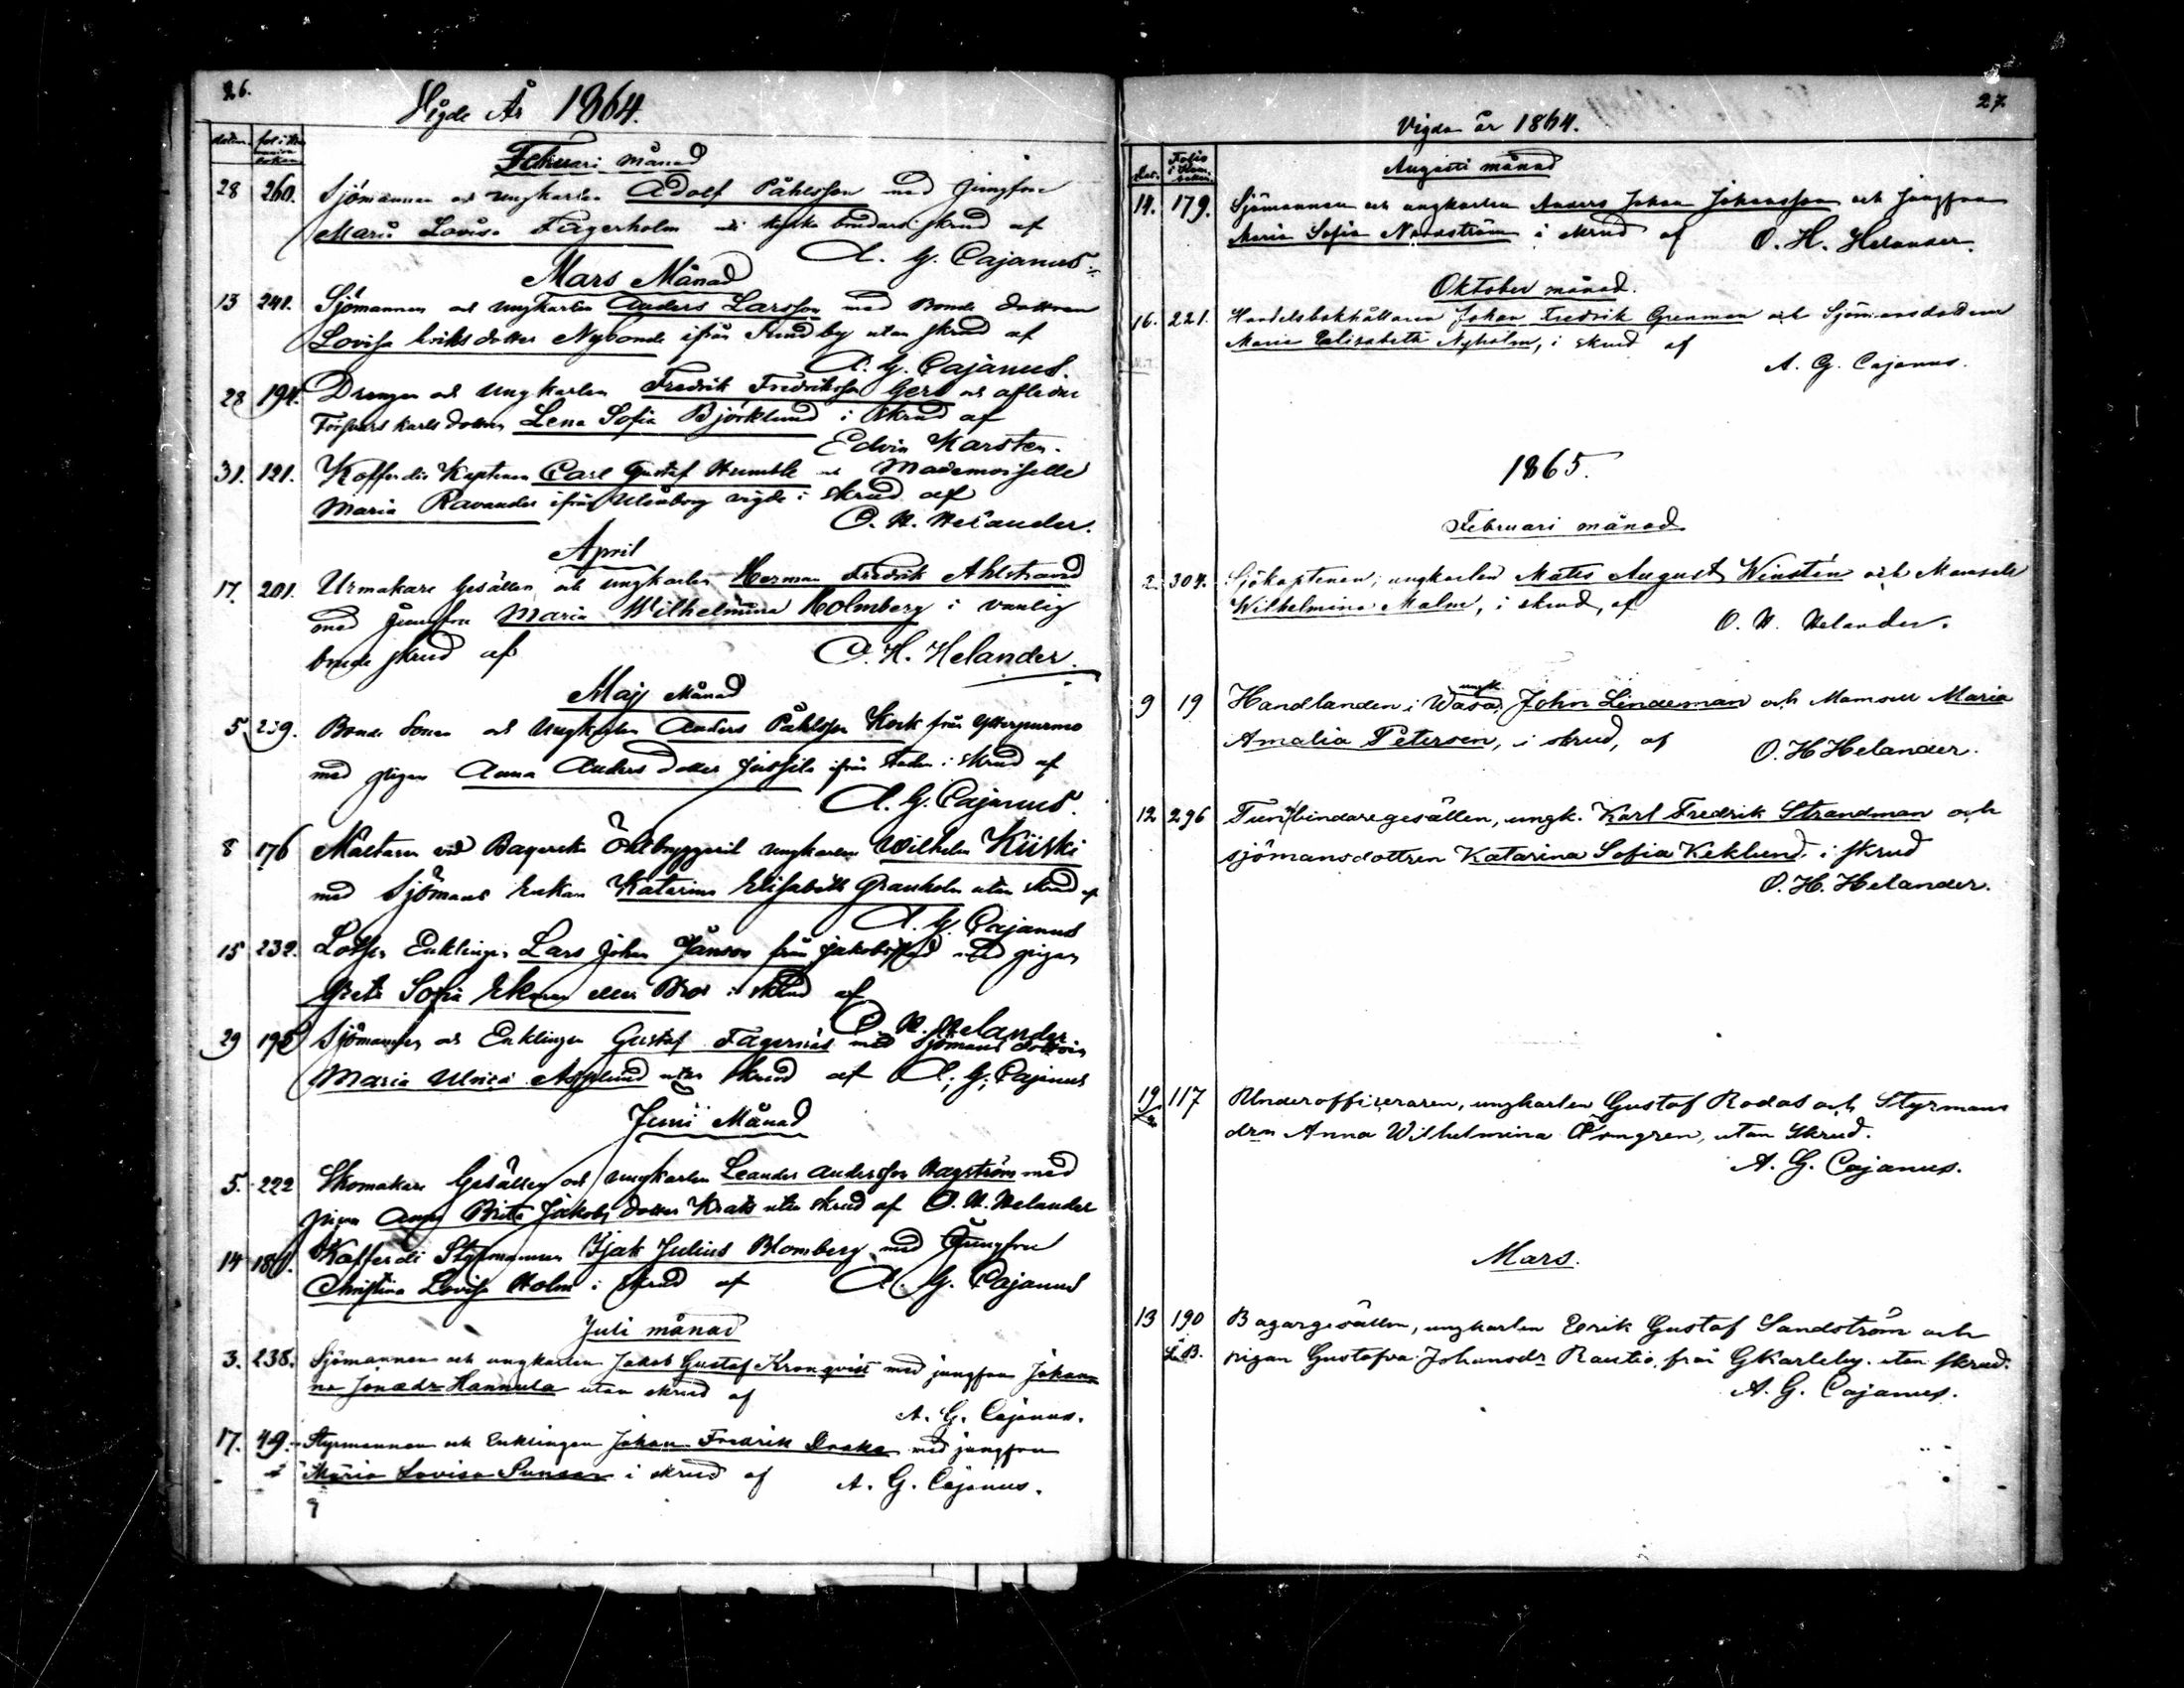 26.
Vigde År 1864.
datum. fol i
boken
Februari Månad
28 260. Sjömannen och ungkarlen Adolf Påhlsson med Jungfru
Maria Lovisa Fagerholm brudars skrud af
A. G. Cajanus
Mars Månad
13 241. Sjömannen och ungkarlen Anders Larsson med Bonde dottren
Lovisa Eriks dotter Nybonde ifrån Sundby utan skrud af
A. G. Cajanus.
28 194. Drengen och ungkarlen Fredrik Fredriksson Gers och aflidne
Försvars karls dotter Lena Sofia Björklund i skrud af
Edvin Karsten.
31. 121. Kofferdie Kaptenen Carl Gustaf Humble och Mademoiselle
Maria Ravander ifrån Uleåborg vigde i skrud af
O. H. Helander.
April
17. 201. Urmakare Gesällen och ungkarlen Herman Fredrik Ahlstrand
med Jungfru Maria Wilhelmina Holmberg i vanlig
brude skrud af O. H. Helander.
Maj Månad
5. 259. Bonde Sonen och Ungkarlen Anders Påhlsson Kock från Ytterpurmo
med pigan Anna Anders dotter Jussila ifrån staden i skrud af
A. G. Cajanus.
8 176 Mältaren vid Bayerska Ölbryggeriet ungkarlen Wilhelm Kiiski
med Sjömans Enkan Katarina Elisabeth Granholm utan skrud af
A. G. Cajanus
15 232. Lotsen Enklingen Lars Johan Jansson från Jakobstad med pigan
Greta Sofia Ekman eller Bro i skrud af
O. H. Helander
29 195 Sjömannen och Enklingen Gustaf Fagernäs med Sjömans dottren
Maria Ulrica Asplund utan skrud af A. G. Cajanus
Junii Månad
5. 222 Skomakare Gesällen och ungkarlen Leander Andersson Hagström med
pigan Anna Brita Jakobs dotter Krats utan skrud af O. H. Helander
14 181. Kofferdi Styrmannen Isak Julius Blomberg med Jungfru
Christina Lovisa Holm i skrud af A. G. Cajanus
Juli månad
3. 238. Sjömannen och ungkarlen Jakob Gustaf Kronqvist med jungfrun Johan
na Jonædr Hannula utan skrud af
A. G. Cajanus.
17. 49. Styrmannen och Enklingen Johan Fredrik Drake med jungfrun
Maria Lovisa Sunsar i skrud af A. G. Cajanus.
27
Vigda år 1864.
Dat. Folio
i Kom.
boken
Augusti månad
14. 179. Sjömannen och ungkarlen Anders Johan Johansson och Jungfrun
Maria Sofia Nordström i skrud af O. H. Helander.
Oktober månad.
16. 221. Handelsbokhållaren Johan Fredrik Grenman och Sjömansdottern
Maria Elisabeth Nyholm, i skrud af
A. G. Cajanus.
1865.
Februari månad
2 304. Sjökaptenen, ungkarlen Mats August Winstén och Mamsell
Wilhelmina Malm, i skrud, af
O. H. Helander.
9 19 Handlanden i Wasa, ungk. John Lindeman och Mamsell Maria
Amalia Petersen, i skrud, af O. H Helander.
12 296 Tunnbindaregesällen, ungk. Karl Fredrik Strandman och
sjömansdottren Katarina Sofia Keklund, i skrud
O. H. Helander.
19 117 Underofficeraren, ungkarlen Gustaf Rodas och Styrmans
drn Anna Wilhelmina Kongren, utan skrud.
A. G. Cajanus.
Mars.
13 190 Bagargesällen, ungkarlen Erik Gustaf Sandström och
L.B. pigan Gustafva Johansdr Rautio, från GKarleby. utan skrud.
A. G. Cajanus.